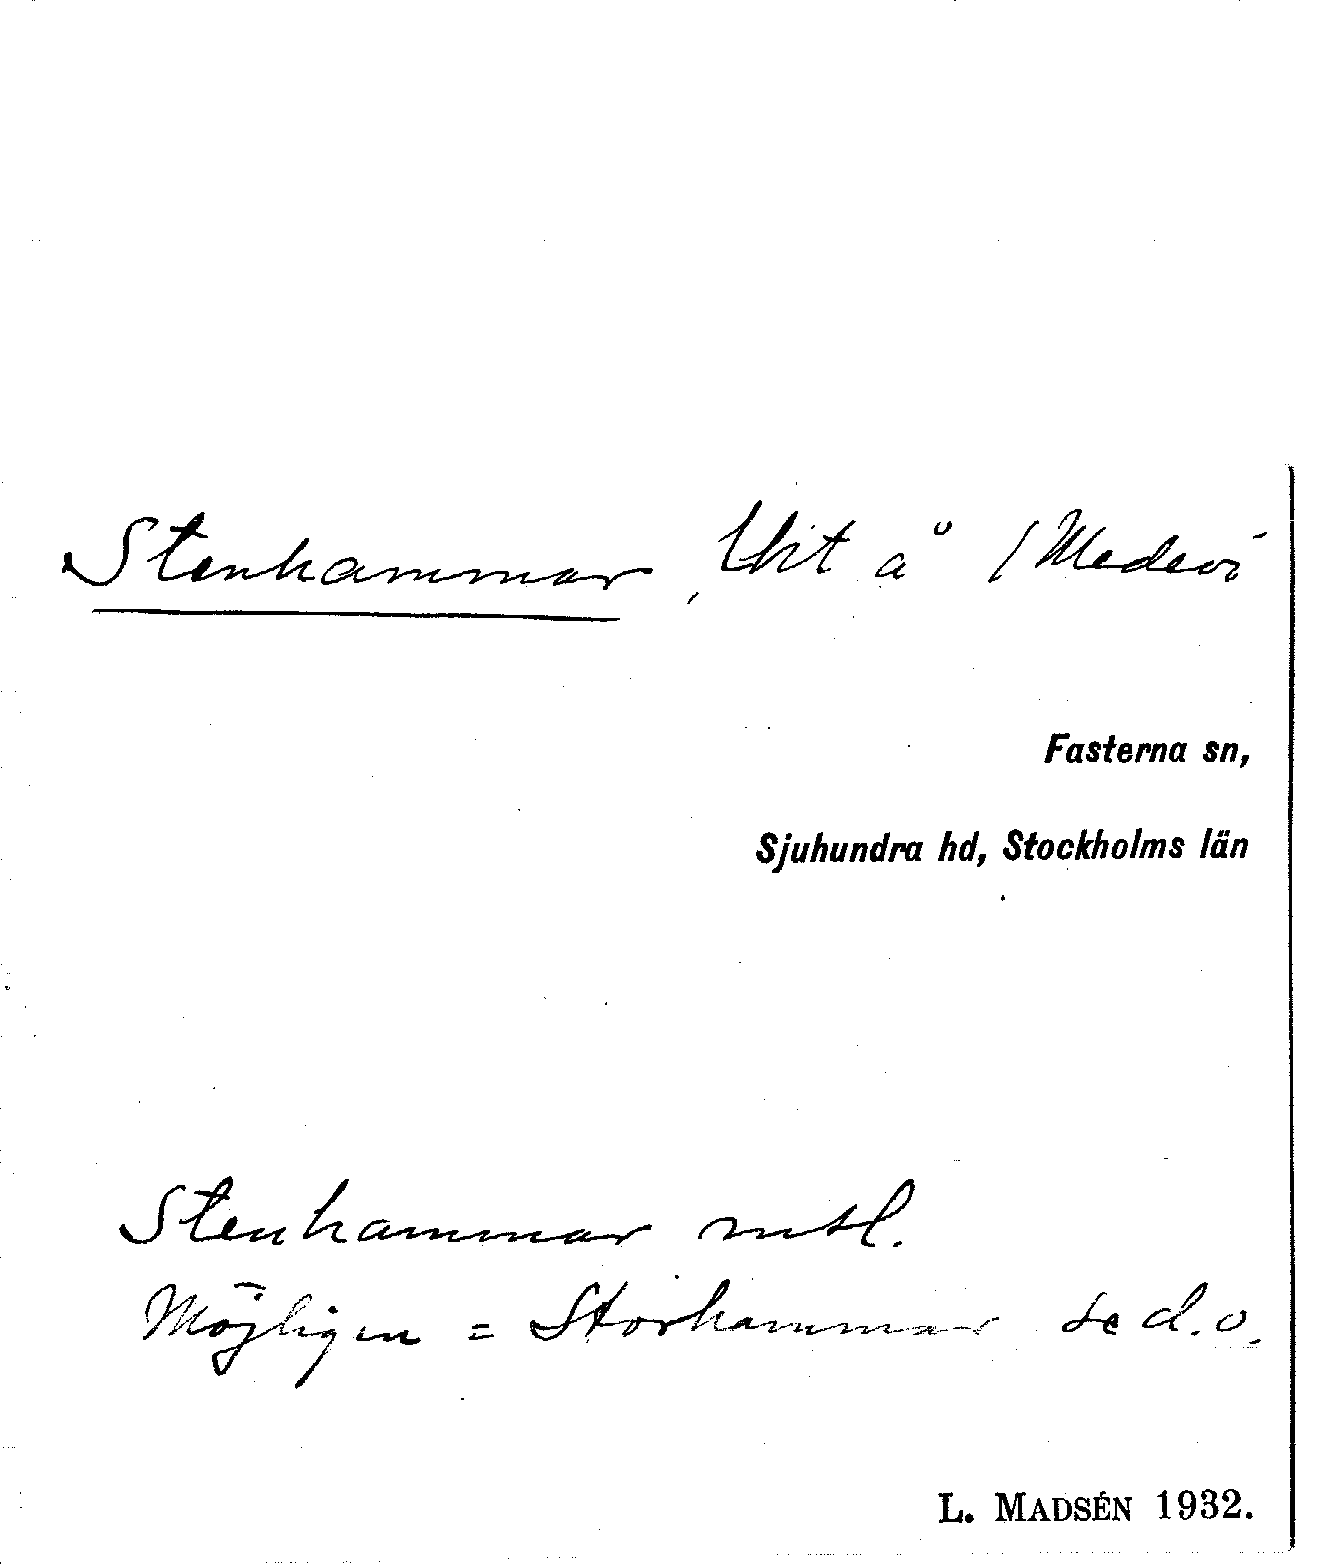 Stenhammar, Ubit å / Medevi
Fasterna sn,
Sjuhundra hd, Stockholms län
Stenhammar mtl.
Möjligen = Storhammar se d.o.
L. MADSÉN 1932.